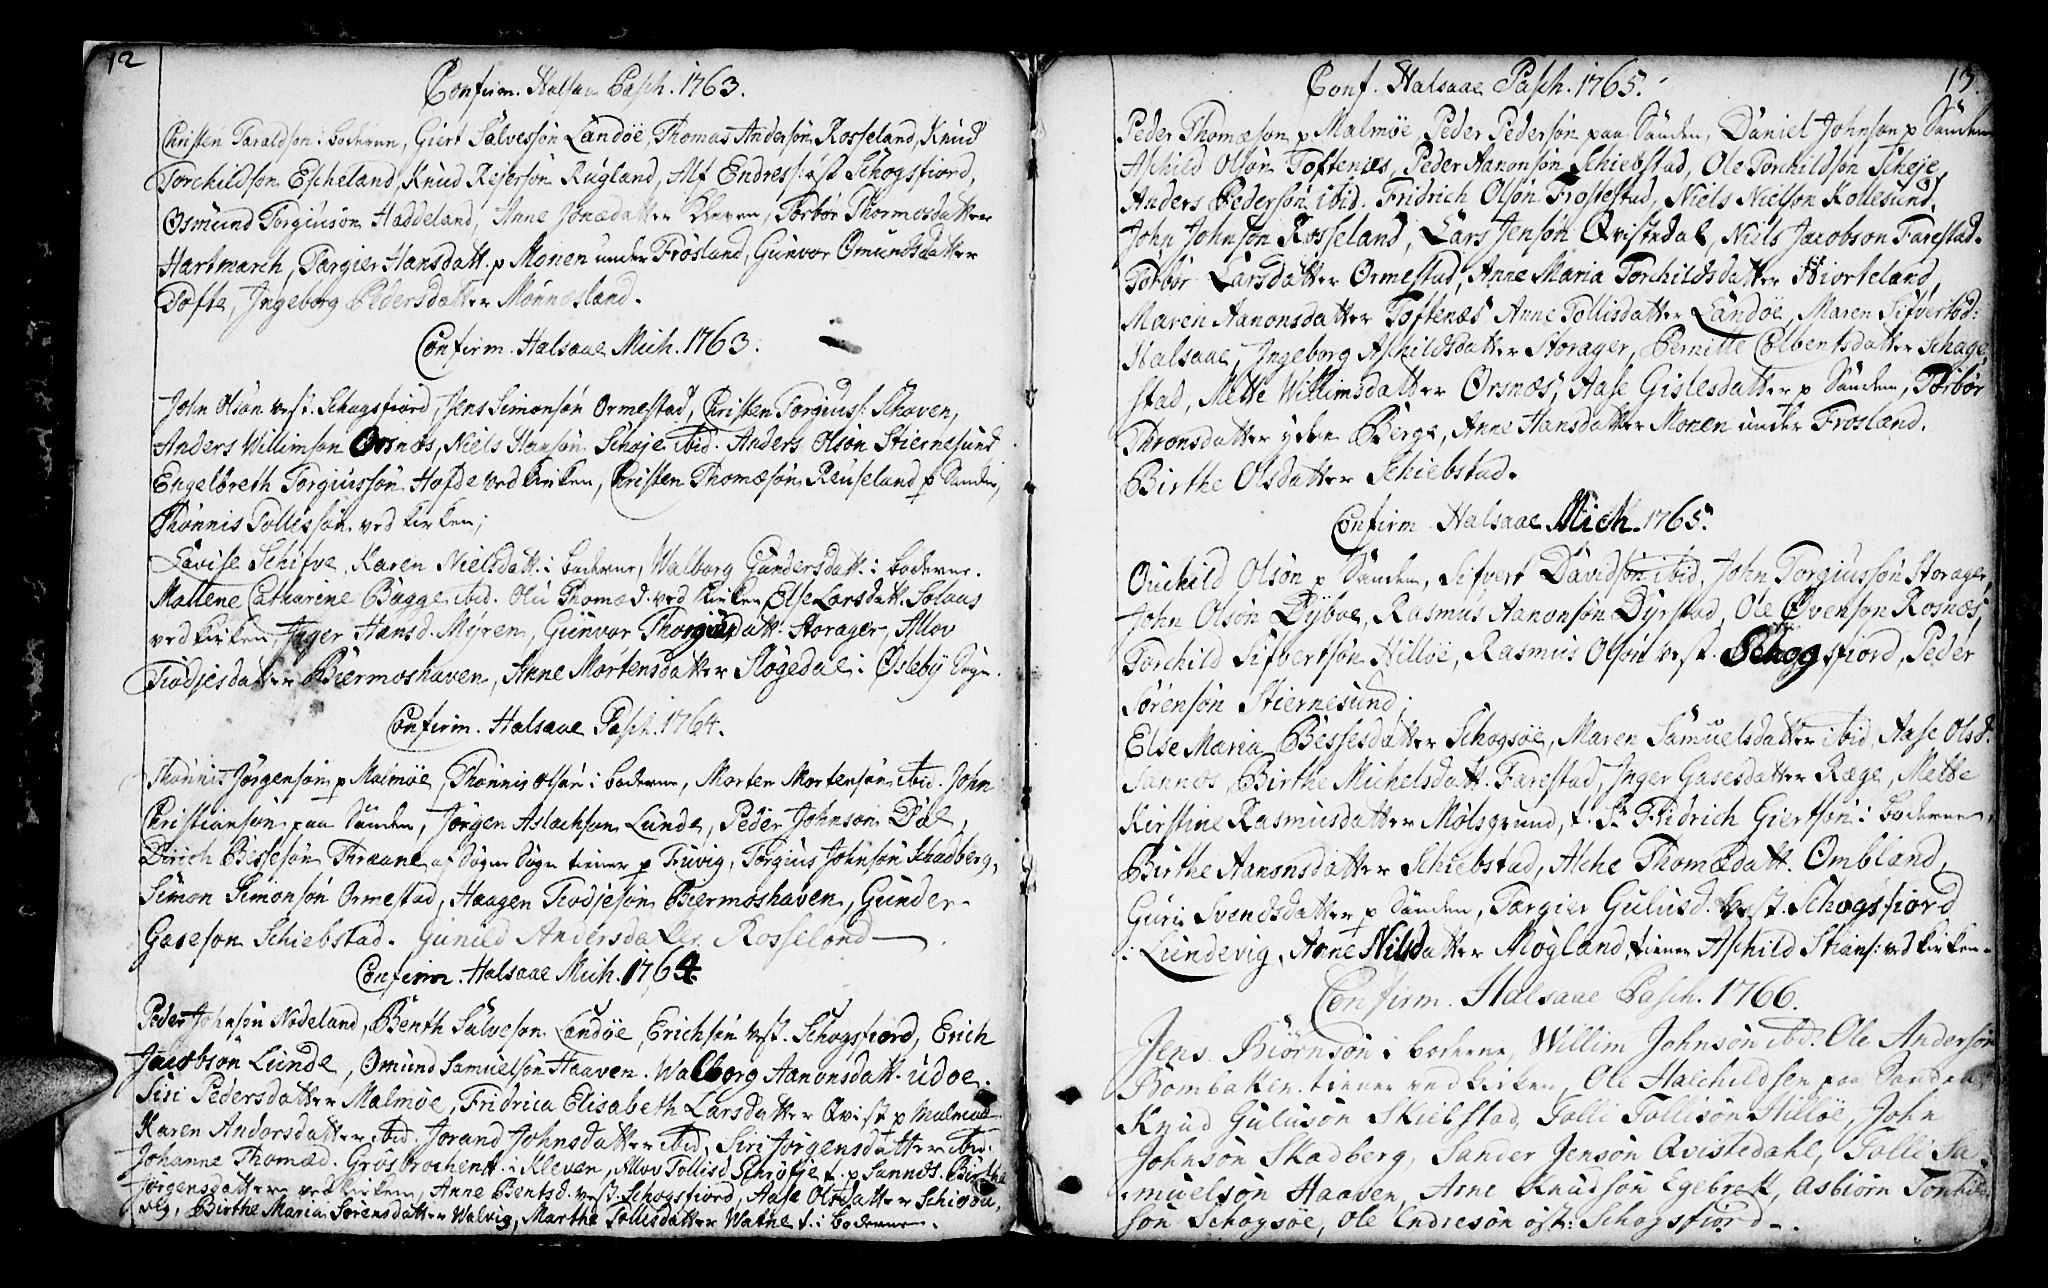 12
Confirm. Halsaae Pasch. 1763.
Christen Taraldsøn i boderne, Giert Salvessøn Landøe, Thomas Andersøn Rosseland, Knud
Torchildsøn Escheland, Knud Rejersøn Rugland, Alf Endress: øst Schogsfiord,
Osmund Torgiusøn Haddeland, Anne Jonædatter Kleven, Torbor Thormosdatter
Hartmarch, Targier Hansdatt. p Monen under Frøsland, Gunvor Omundsdatter
Tofte, Ingeborg Pedersdatter Monnosland.
Confirm. Halsaae Mich. 1763.
John Olsøn vest. Schogsfiord, Jens Simonsøn Ormestad, Christen Torgiuss: Skaven,
Anders Willimsøn Orsnæs, Niels Hansøn Schøje ibid. Anders Olsøn Stiernesund
Engelbreth Torgiussøn Hofde ved kirken, Christen Thomæsøn Reuseland p Sanden,
Thønnis Tollissøn ved kirken;
Lavise Schifve, Karen Nielsdatt. i boderne, Walborg Gundersdatt. i boderne.
Mallene Catharine Bugge ibid. Olu Thomæd. ved kirken, Else Larsdatt. Solaas
ved kirken, Inger Hansd. Myren, Gunvor Thorgiusdatt. Storager, Allov
Tiodjesdatter Biermoshaven, Anne Mortensdatter Slogedal i Øsleby Sogn.
Confirm. Halsaae Pasch. 1764.
Thønnis Jørgensøn p Malmøe, Thønnis Olsøn i boderne, Morten Mortensøn ibid. John
Christiansøn paa Sanden, Jørgen Aslachsøn Lunde, Peder Johnson Dal,
Dirich Bessesøn Thraane af Søgne Sogn tiener p Truvig, Torgius Johnsøn Schadberg,
Simon Simonsøn Ormestad, Haagen Tiodjesøn Biermoshaven, Gunder
Gasesøn Schiebstad. Gunild Andersdatter Rosseland
Confirm. Halsaae Mich. 1764.
Peder Johnsøn Nodeland, Benth Salvesøn Landøe, Erichsøn vest. Schogsfiord, Erich
Jacobsøn Lunde, Omund Samuelsøn Haaven. Walborg Aanonsdatt. Udøe.
Siri Pedersdatter Malmøe, Fridrica Elisabeth Larsdatter Qvist p Malmøe
Karen Andorsdatter ibid. Jorand Johnsdatter ibid, Siri Jørgensdatter ibid.
Johanne Thomæd. Grosbrochenet i Kleven, Allov Tollisd. Schrøfje t. p Sannæs. Birthe
Jørgensdatter ved kirken, Anne Bentsd. vest. Schogsfiord, Aase Olsdatter Schiøn
vig, Birthe Maria Sørensdatter Walvig, Marthe Tollisdatter Watne t. i boderne.
13.
Conf. Halsaae Pasch. 1765.
Peder Thomæsøn p Malmøe, Peder Pedersøn paa Sanden, Daniel Johnsøn p Sanden
Aschild Olsøn Toftenæs, Peder Aanonsøn Schiebstad, Ole Torchildsøn Scheje,
Anders Pedersøn ibid. Fridrich Olsøn Frossestad, Niels Nielsøn Kollesund,
John Johnsøn Rosseland, Lars Jensøn Qvistedal, Niels Jacobsøn Farestad.
Torbor Larsdatter Ormestad, Anne Maria Torchildsdatter Hiorteland,
Maren Aanonsdatter Toftenæs, Anne Tollisdatter Landøe, Maren Sifvertsd:
Halsaae, Ingeborg Aschildsdatter Storager, Pernille Colbentsdatter Schage
stad, Mette Willimsdatter Orsnæs, Aase Gislesdatter p Sanden, Torbor
Thronsdatter yden Berge, Anne Hansdatter Monen under Frosland.
Birthe Olsdatter Schiebstad.
Confirm. Halsaae Mich. 1765.
Ouchild Olsøn p Sanden, Sifvert Davidsøn ibid, John Torgiussøn Storager,
John Olsøn Dyboe, Rasmus Aanonsøn Dyrstad, Ole Øvensøn Rosnæs,
Torchild Sifvertsøn Hilløe, Rasmus Olsøn vest. Schogsfiord, Peder
Sørensøn Stiernesund;
Else Maria Bessesdatter Schogsøe, Maren Samuelsdatter ibid, Aase Olsd.
Sannæs, Birthe Michelsdatt. Farestad, Inger Gasesdatter Ræge, Mette
Kirstine Rasmusdatter Molsgrund, t. Sr Fridrich Giertsøn i boderne,
Birthe Aanonsdatter Schiebstad, Alche Thomædatt. Ombland,
Guri Svendsdatter p Sanden, Targier Gulusd. vest. Schogsfiord
i Lundevig, Anne Nilsdatter Møgland, tiener Aschild Stians: ved kirken.
Confirm. Halsaae Pasch. 1766.
Jens Biørnsøn i boderne, Willim Johnsøn ibd. Ole Andersøn
Bombakken tiener ved kirken, Ole Halchildsen paa Sanden
Knud Gulusøn Skiebstad, Tolli Tollisøn Hilløe, John
Johnsøn Skadberg, Sander Jensøn Qvistedahl, Tolli Sa
muelsøn Haaven, Arne Knudsøn Egebrekk, Asbiørn Tønnis
søn Schogsøe, Ole Endresøn øst: Schogsfiord.